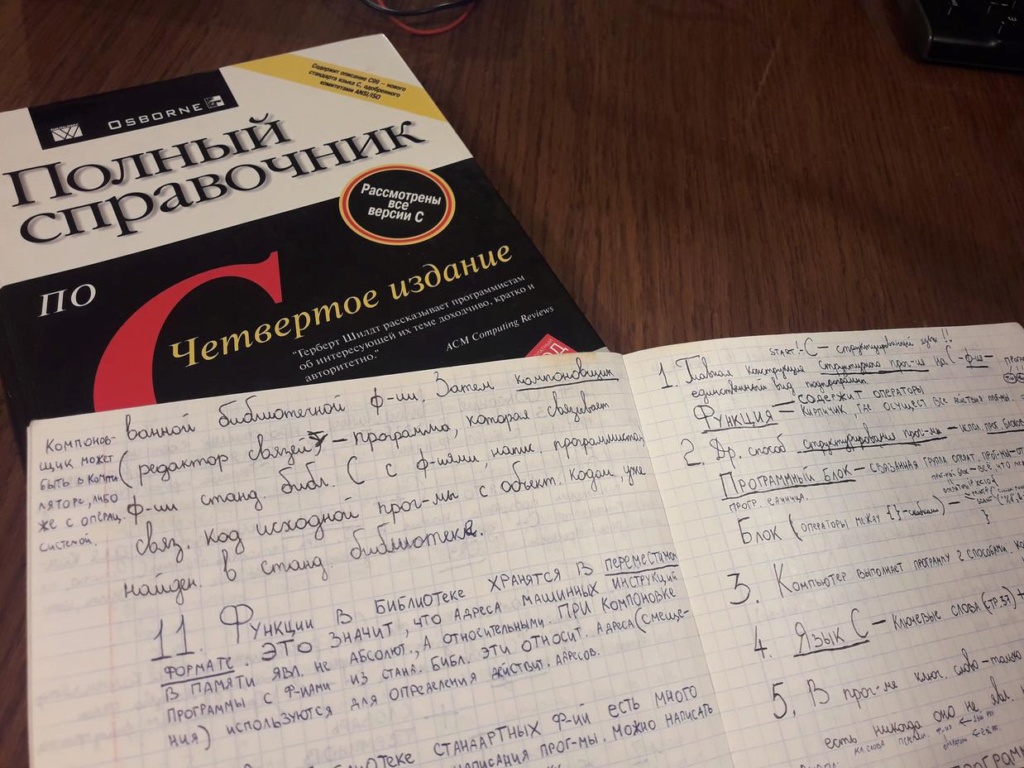 Содержит описание C99 – нового
стандарта языка C, одобренного
комитетами ANSI/ISO
OSBORNE
Полный
справочник
Рассмотрены
все
версии C
по
C
Четвертое издание
"Герберт Шилдт рассказывает программистам
об интересующей их теме доходчиво, кратко и
авторитетно."
ACM Computing Reviews
ванной библиотечной ф-ии. Затем компоновщик
(редактор связей) – программа, которая связывает
ф-ии станд. библ. С с ф-иями, напис. программистом,
связ. код исходной прог-мы с объект. кодом, уже
найден. в станд библиотеке.
Компонов-
щик может
быть в компи
ляторе, либо
же с операц.
системой.
11. Функции в библиотеке хранятся в переместимом
формате. Это значит, что адреса машинных инструкций
в памяти явл. не абсолют., а относительными. При компоновке
программы с ф-иями из станд. библ. эти относит. адреса (смеще-
ния) используются для определения действит. адресов.
библиотеке стандартных ф-ий есть много
написания прог-мы. Можно написать
START! C – структурированный язык!!
1. Главная конструкция структурного прог-ия на C – ф-ия –
единственный вид подпрограмм
Функция = содержит операторы
кирпичик, где осущест все действия
2. Др. способ структурирования прог-мы – испол. прог. блоков
Программный блок – связанная группа операт. прог-мы
прогр. единица.
Блок (операторы между {}-скобками) =
3. Компьютер выполнает программу 2 способами:
4. Язык С – ключевые слова (стр. 57) +
5. В прог-ме ключ. слово – только
есть никогда оно не явл.